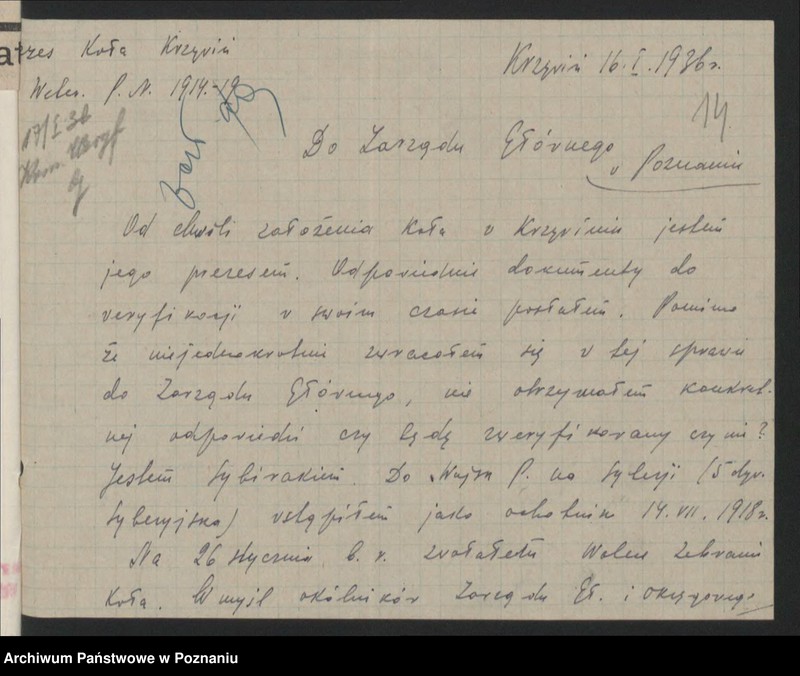 rzes Koła Krzywiń
Krzywiń 16.I.1936r.
Weter. P. N. 1914-19
17/I 36
14
Do Zarządu Głównego
w Poznaniu
Od chwili założenia Koła w Krzywiniu jestem
jego prezesem. Odpowiednie dokumenty do
weryfikacji w swoim czasie posłałem. Pomimo
że niejednokrotnie zwracałem się w tej sprawie
do Zarządu Głównego, nie otrzymałem konkret-
nej odpowiedzi czy będę zweryfikowany czy nie?
Jestem Sybirakiem. Do Wojsk P. na Syberji (5 dyw.
Syberyjska) wstąpiłem jako ochotnik 14.VII.1918r.
Na 26 stycznia b. r. zwołałem Walne Zebranie
Koła. W myśl okólników Zarządu Gł. i Okręgowego
Archiwum Państwowe w Poznaniu